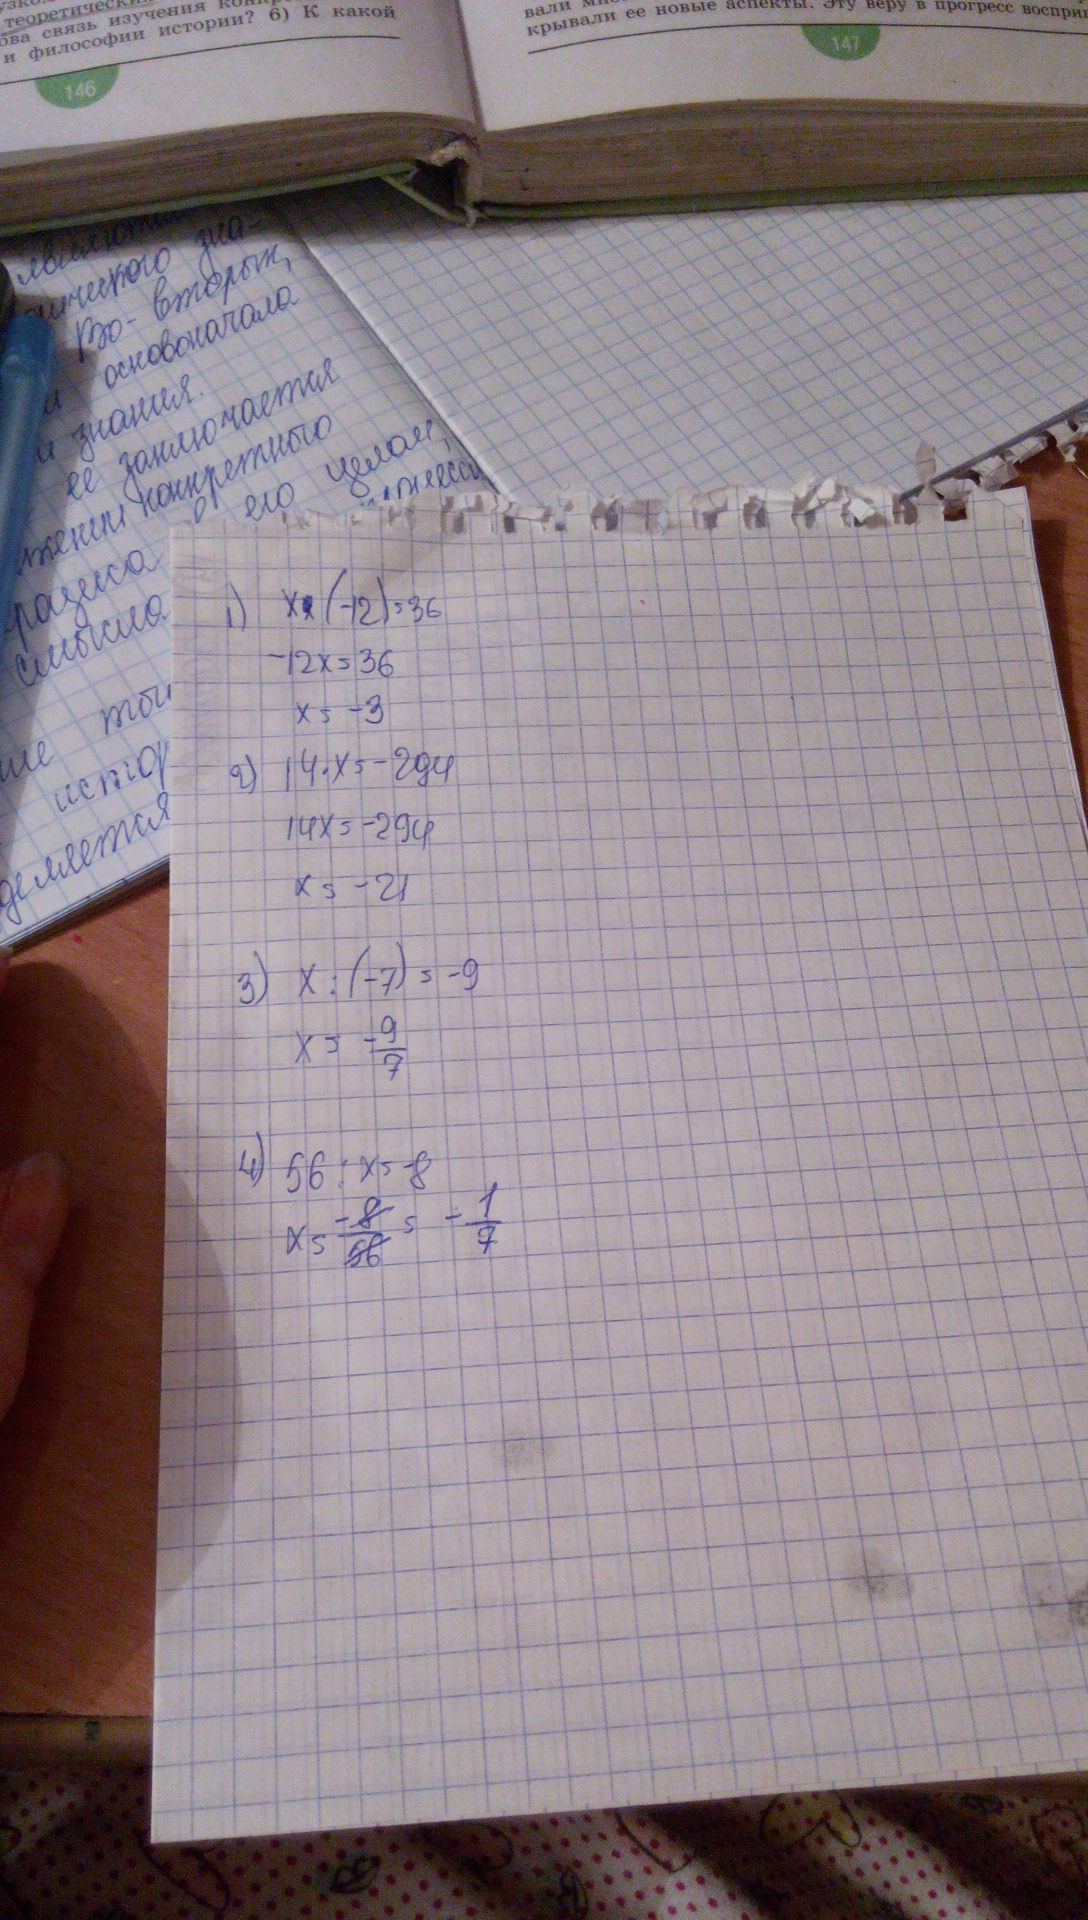 теоретическ
ова связь изучения конкр
и философии истории? 6) К какой
146
вали мно
крывали ее новые аспекты. Эту веру в прогресс воспри
147
являются
знa-
Во-вторых,
и основоначала
и знания.
ее заключается
жении конкретного
в его целом,
смысла
ние
истор
деляется
1) x·(-12)=36
-12x=36
x=-3
2) 14·x=-294
14x=-294
x=-21
3) x:(-7)=-9
x=-9/7
4) 56:x=-8
x=-8/56=-1/7